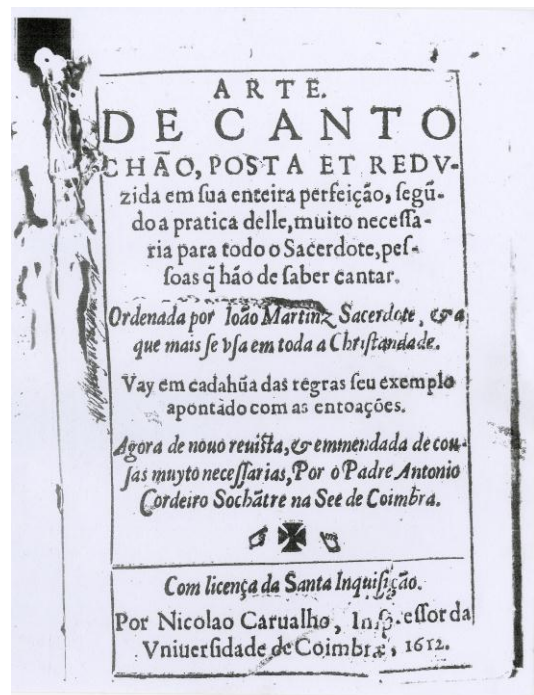 ARTE.
DE CANTO
CHÃO, POSTA ET REDV-
zida em ſua enteira perfeição, ſegũ-
do a pratica delle, muito neceſſa-
ria para todo o Sacerdote, peſ-
ſoas q̃ hão de ſaber cantar.
Ordenada por Ioão Martinz Sacerdote, & a
que mais ſe vſa em toda a Chriſtandade.
Vay em cadahũa das regras ſeu exemplo
apontado com as entoações.
Agora de nouo reuiſta, & emmendada de cou-
ſas muyto neceſſarias, Por o Padre Antonio
Cordeiro Sochãtre na See de Coimbra.
Com licença da Santa Inquiſição.
Por Nicolao Carualho, Impreſſor da
Vniuerſidade de Coimbra, 1612.